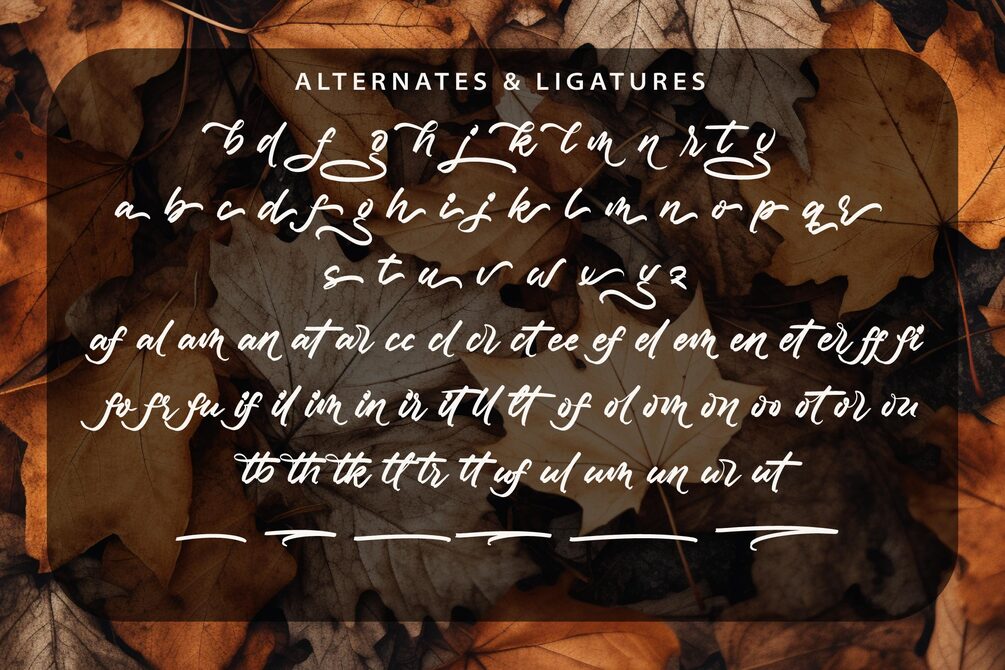 ALTERNATES & LIGATURES
b d f g h j k l m n r t y
a b c d f g h i j k l m n o p q r
s t u v w x y z
af al am an at ar cc cl cr ct ee ef el em en et er ff fi
fo fr fu if il im in ir it ll lt of ol om on oo ot or ou
tb th tk tl tr tt uf ul um un ur ut